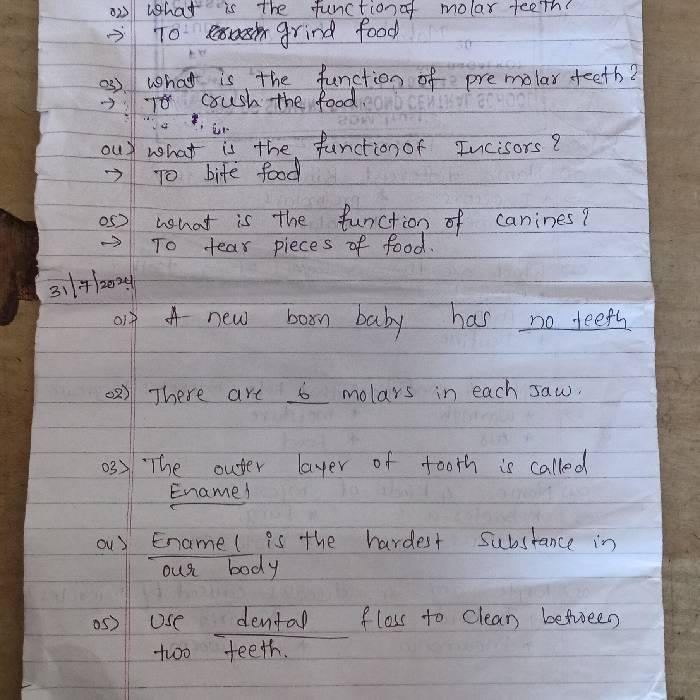 02) What is the function of molar teeth?
→ To grind food
03). What is the function of premolar teeth?
→ To crush the food
04) What is the function of Incisors?
→ To bite food
05) What is the function of canines?
→ To tear pieces of food.
31/7/2024
01) A new born baby has no teeth
02) There are 6 molars in each Jaw.
03) The outer layer of tooth is called
Enamel
04) Enamel is the hardest substance in
our body
05) Use dental floss to clean between
two teeth.